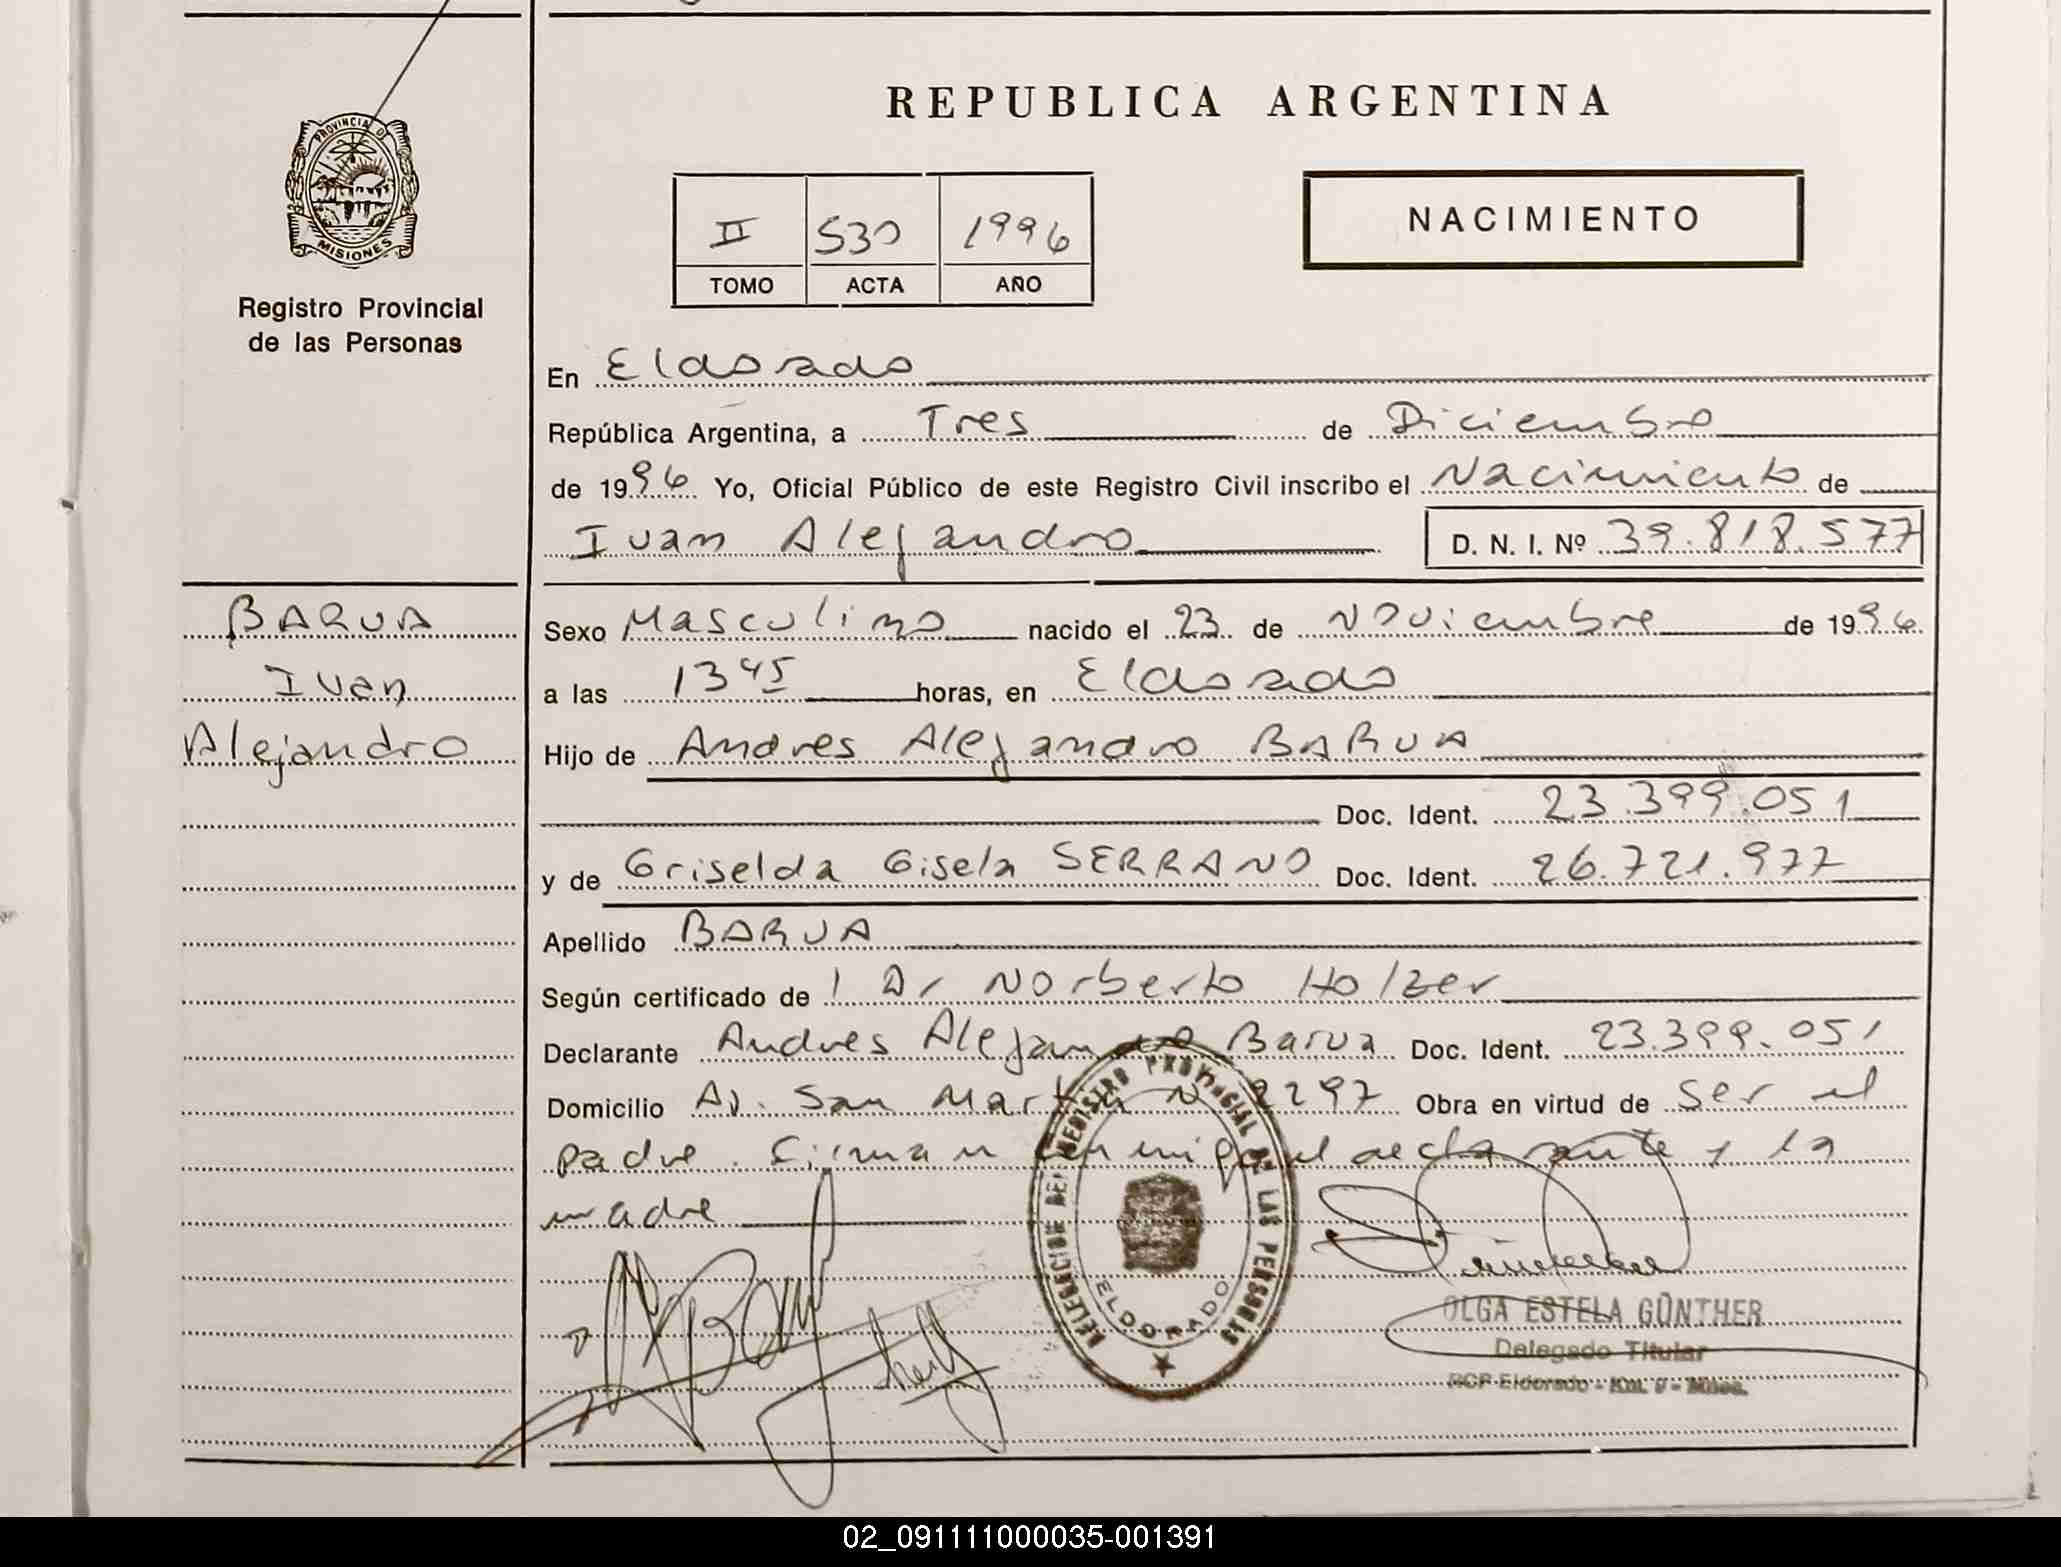 REPUBLICA ARGENTINA
PROVINCIA D
MISIONES
Registro Provincial
de las Personas
II 530 1996
TOMO ACTA AÑO
NACIMIENTO
En Eldorado
República Argentina, a Tres de Diciembre
de 1996 Yo, Oficial Público de este Registro Civil inscribo el Nacimiento de
Ivan Alejandro D. N. I. Nº 39.818.577
BARUA
Ivan
Alejandro
Sexo Masculino nacido el 23 de Noviembre de 1996
a las 13 45 horas, en Eldorado
Hijo de Andres Alejandro BARUA
Doc. Ident. 23.399.051
y de Griselda Gisela SERRANO Doc. Ident. 26.721.977
Apellido BARUA
Según certificado de l Dr Norberto Holzer
Declarante Andres Alejandro Barua Doc. Ident. 23.399.051
Domicilio Av. San Martin N 2297 Obra en virtud de ser el
padre. Firman conmigo el declarante y la
madre
DELEGACION DEL REGISTRO PROVINCIAL DE LAS PERSONAS
ELDORADO
OLGA ESTELA GÜNTHER
Delegado Titular
RCP Eldorado - Km. 9 - Mnes.
02_091111000035-001391